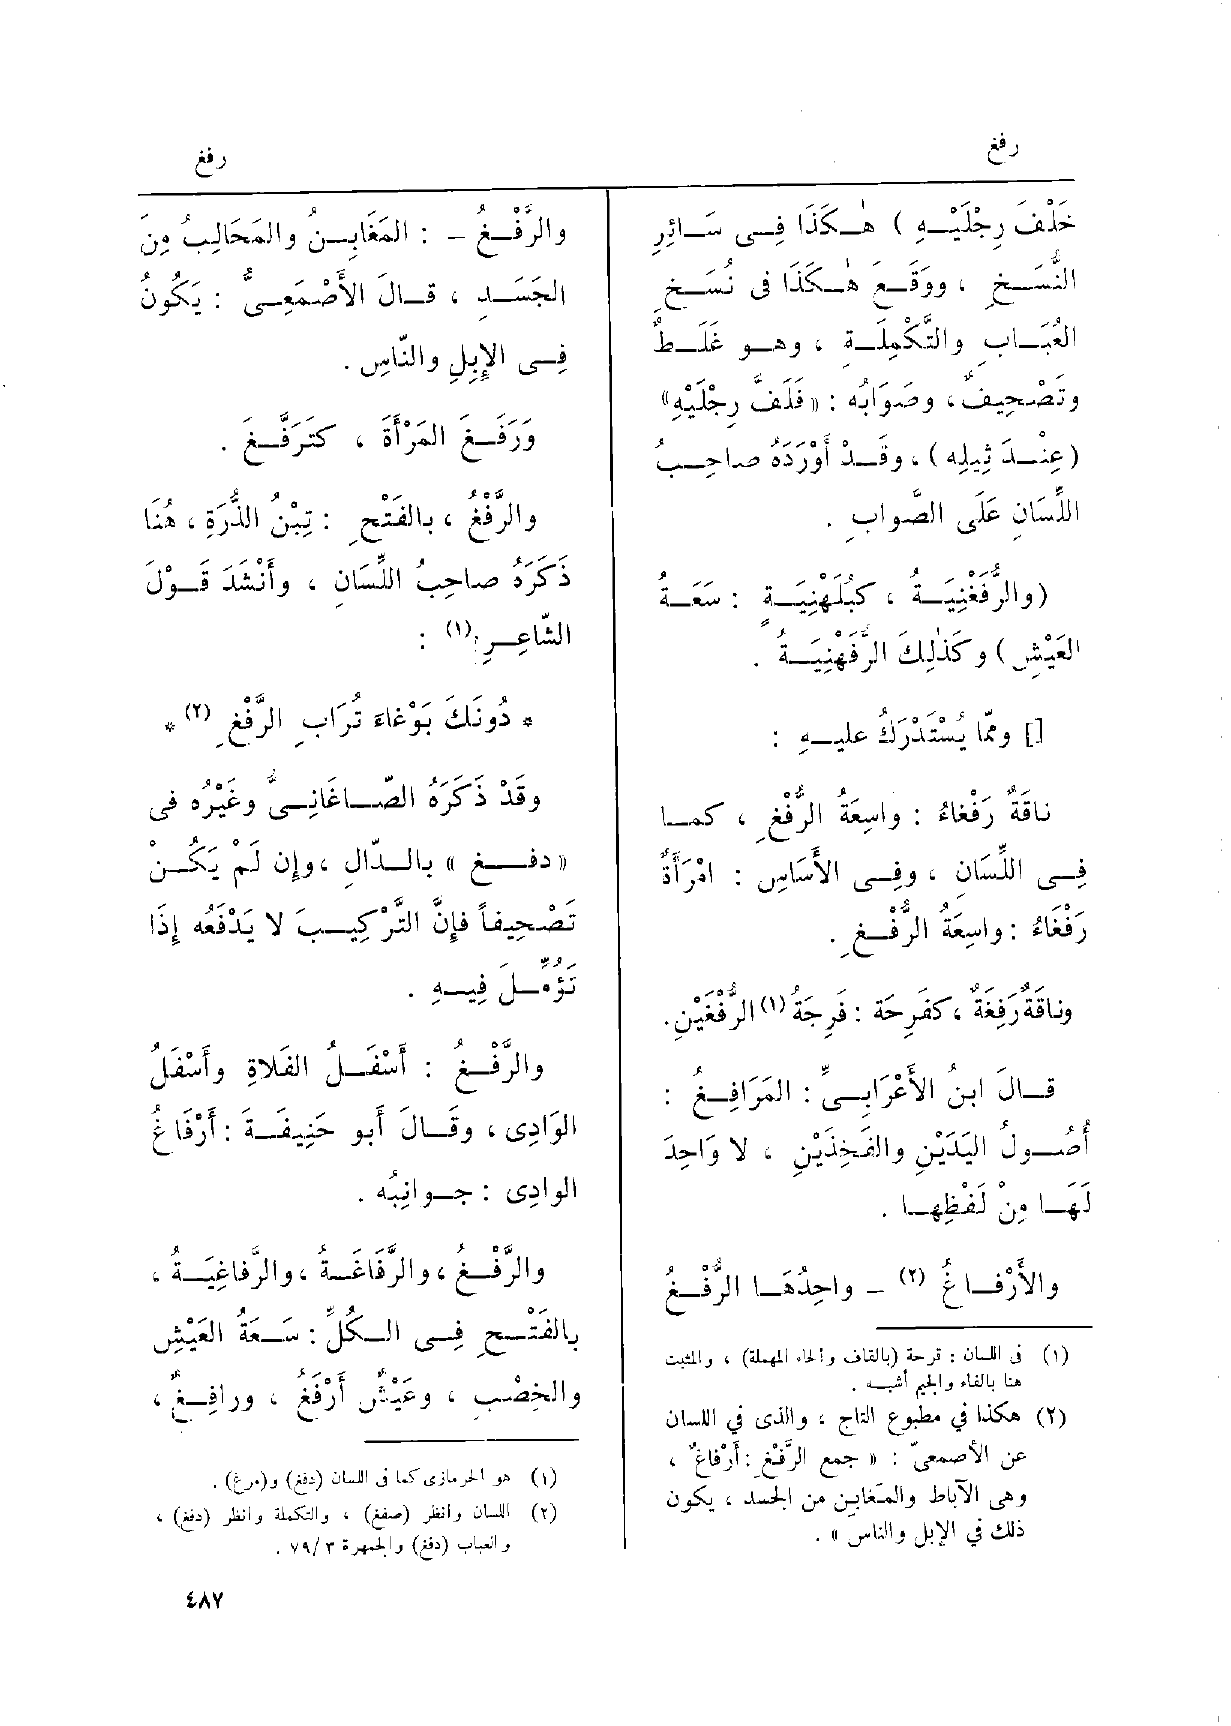 رفغ
رفغ
خَلْفَ رِجْلَيْهِ ) هٰكَذَا فِى سَائِرِ
النُّسَخِ ، ووَقَعَ هٰكَذَا فى نُسَخِ
العُبَابِ والتَّكْمِلَةِ ، وهو غَلَطٌ
وتَصْحِيفٌ، وصَوَابُه : « فَلَفَّ رِجْلَيْهِ»
(عِنْدَ ثِيلِه ) ، وقَدْ أَوْرَدَهُ صاحِبُ
اللِّسَانِ عَلَى الصَّوابِ .
(والرُّفَغْنِيَةُ ، كبُلَهْنِيَةٍ : سَعَةُ
العَيْشِ) وكَذٰلِكَ الرُّفَهْنِيَةُ .
[] وممّا يُسْتَدْرَكُ عليهِ :
ناقَةٌ رَفْغاءُ : واسِعَةُ الرُّفْغِ ، كما
فِى اللِّسَانِ ، وفِى الأَسَاسِ : امْرَأَةٌ
رَفْغَاءُ : واسِعَةُ الرُّفْغِ .
وناقَةٌ رَفِغَةٌ ، كفَرِحَة : فَرِجَةُ (١) الرُّفْغَيْنِ.
قالَ ابنُ الأَعْرَابِىِّ : المَرَافِغُ :
أُصُولُ اليَدَيْنِ والفَخِذَيْنِ ، لا وَاحِدَ
لَهَا مِنْ لَفْظِها .
والأَرْفَاغُ (٢) - واحِدُهَا الرُّفْغُ
(١) فى اللسان : قرحة (بالقاف والحاء المهملة) ، والمثبت
هنا بالفاء والجيم أشبه .
(٢) هكذا في مطبوع التاج ، والذى في اللسان
عن الأصمعىّ : « جمع الرَّفْغِ : أَرْفاغٌ ،
وهى الآباط والمَغابِن من الجسد ، يكون
ذلك في الإبل والناس » .
والرَّفْغُ - : المَغَابِنُ والمَحَالِبُ مِنَ
الجَسَدِ ، قالَ الأَصْمَعِىُّ : يَكُونُ
فِى الإِبِلِ والنّاسِ .
وَرَفَغَ المَرْأَةَ ، كتَرَفَّغَ .
والرَّفْغُ ، بالفَتْحِ : تِبْنُ الذُّرَةِ ، هُنَا
ذَكَرَهُ صاحِبُ اللِّسَانِ ، وأَنْشَدَ قَوْلَ
الشّاعِرِ (١) :
* دُونَكَ بَوْغاءَ تُرَابِ الرَّفْغِ (٢) *
وقَدْ ذَكَرَهُ الصّاغَانِىُّ وغَيْرُه فى
«دفغ » بالدّالِ ، وإِن لَمْ يَكُنْ
تَصْحِيفاً فإِنَّ التَّرْكِيبَ لا يَدْفَعُه إِذَا
تُؤُمِّلَ فِيهِ .
والرَّفْغُ : أَسْفَلُ الفَلاةِ وأَسْفَلُ
الوَادِى ، وقَالَ أبو حَنِيفَةَ : أَرْفَاغُ
الوادِى : جوانِبُه .
والرَّفْغُ ، والرَّفَاغَةُ ، والرَّفاغِيَةُ ،
بالفَتْحِ فِى الكُلِّ : سَعَةُ العَيْشِ
والخِصْبِ ، وعَيْشٌ أَرْفَغُ ، ورافِغٌ ،
(١) هو الحرمازى كما فى اللسان (دفغ) و(مرغ) .
(٢) اللسان وانظر (صفغ) ، والتكملة وانظر (دفغ) ،
والعباب (دفغ) والجمهرة ٣ /٧٩ .
٤٨٧